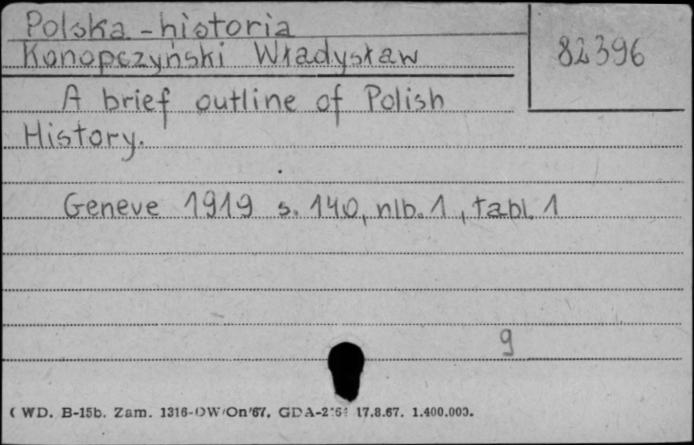 Polska - historia
Konopczyński Władysław
82396
A brief outline of Polish
History.
Geneve 1919 s. 140, nlb. 1, tabl. 1
9
( WD. B-15b. Zam. 1316-OW/On/67. 17.8.67. 1.400.000.